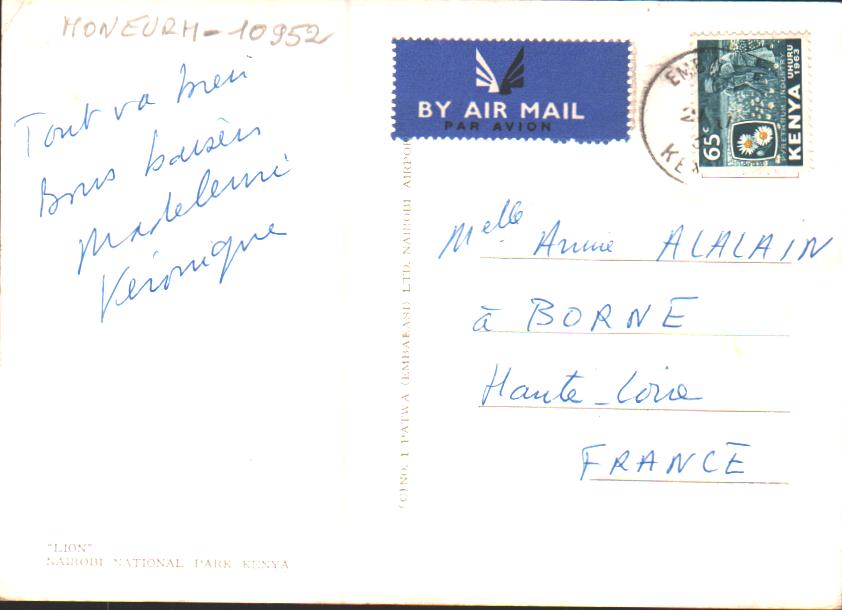 MONEURM-10952
Tout va bien
Bons baisers
Madeleine
Véronique
"LION"
NAIROBI NATIONAL PARK KENYA
(C) NO. 1 PATWA (EMBAKASI) LTD. NAIROBI AIRPOR
BY AIR MAIL
PAR AVION
KENYA UHURU 1963
65c
Melle Annie ALALAIN
à BORNE
Haute-Loire
FRANCE